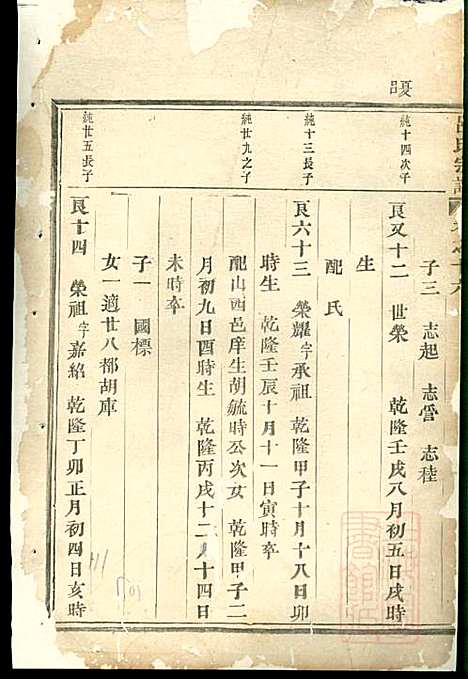 呂氏宗譜
子三 志起 志管 志稑
純十四次子
良又十二 世榮 乾隆壬戌八月初五日戌時
生
配氏
純十三長子
良六十三 榮耀字承祖 乾隆甲子十月十八日卯
時生 乾隆壬辰十月十一日寅時卒
純廿九之子
配山西邑庠生胡毓時公次女 乾隆甲子二
月初九日酉時生 乾隆丙戌十二月十四日
未時卒
子一 國標
女一適廿八都胡庫
純廿五長子
良十四 榮祖字嘉紹 乾隆丁卯正月初四日亥時